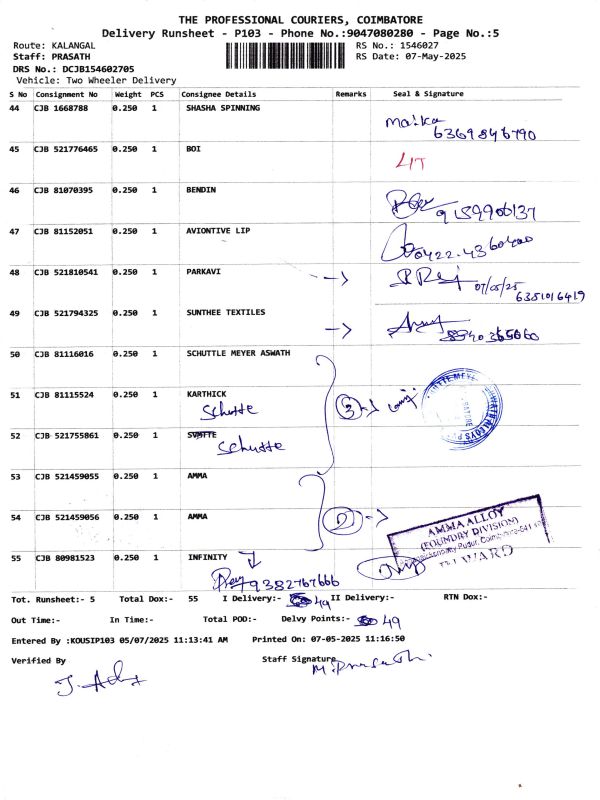 THE PROFESSIONAL COURIERS, COIMBATORE
Delivery Runsheet - P103 - Phone No.:9047080280 - Page No.:5
Route: KALANGAL RS No.: 1546027
Staff: PRASATH RS Date: 07-May-2025
DRS No.: DCJB154602705
Vehicle: Two Wheeler Delivery
S No Consignment No Weight PCS Consignee Details Remarks Seal & Signature
44 CJB 1668788 0.250 1 SHASHA SPINNING
6369846790
45 CJB 521776465 0.250 1 BOI
46 CJB 81070395 0.250 1 BENDIN
9159906137
47 CJB 81152051 0.250 1 AVIONTIVE LIP
0422.4360400
48 CJB 521810541 0.250 1 PARKAVI
07/05/25
6381016419
49 CJB 521794325 0.250 1 SUNTHEE TEXTILES
50 CJB 81116016 0.250 1 SCHUTTLE MEYER ASWATH
51 CJB 81115524 0.250 1 KARTHICK
Schutte 3
52 CJB 521755861 0.250 1
Schutte
53 CJB 521459055 0.250 1 AMMA
54 CJB 521459056 0.250 1 AMMA
2
AMMA ALLOY
(FOUNDRY DIVISION)
55 CJB 80981523 0.250 1 INFINITY
9382767666
Tot. Runsheet:- 5 Total Dox:- 55 I Delivery:- 49 II Delivery:- RTN Dox:-
Out Time:- In Time:- Total POD:- Delvy Points:- 49
Entered By :KOUSIP103 05/07/2025 11:13:41 AM Printed On: 07-05-2025 11:16:50
Verified By Staff Signature
M.Prasath